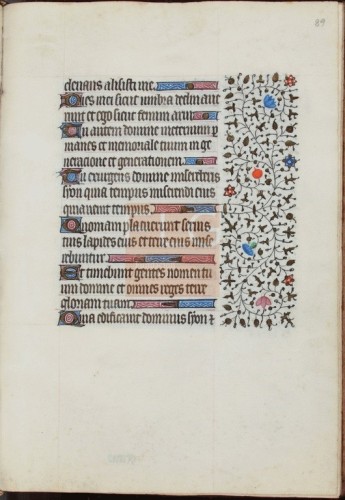 89
clenans absisti me.
Dies mei sicut umbra declinave
runt et ego sicut fenum arui
Tu autem domine in eternum p
manes et memoriale tuum in ge
neracione et generationem
Tu exurgens domine misereberis
syon quia tempus miserendi eius
quia venit tempus
Quoniam placuerunt servis
tuis lapides eius et terre eius mise
rebuntur
Et timebunt gentes nomen tu
um domine et omnes reges terre
gloriam tuam
Quia edificavit dominus syon et